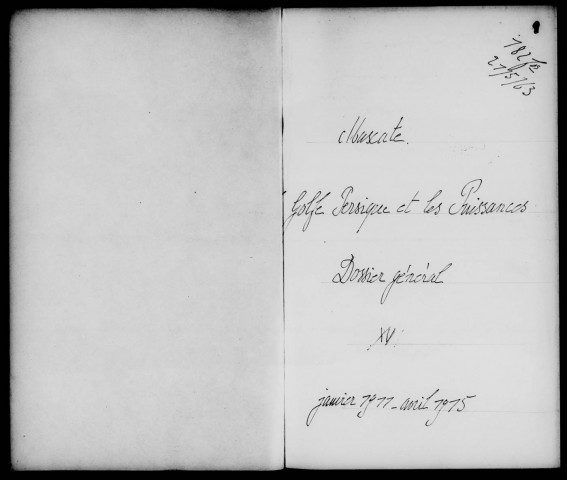 182 fs
21/5/63
Mascate.
Golfe Persique et les Puissances
Dossier général
XV.
janvier 1911 - avril 1915